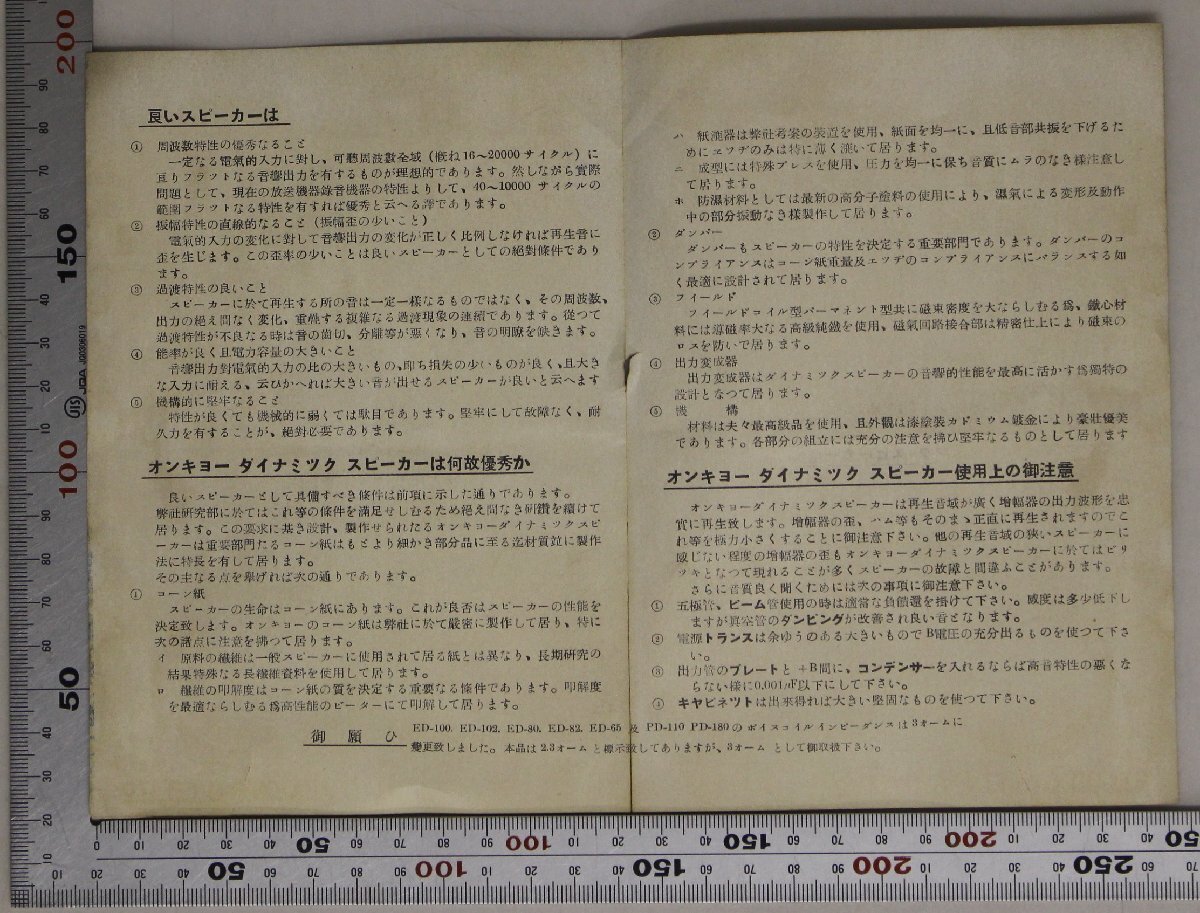 良いスピーカーは
① 周波数特性の優秀なること
一定なる電氣的入力に對し、可聽周波數全域（概ね16～20000サイクル）に
亘りフラツトなる音響出力を有するものが理想的であります。然しながら實際
問題として、現在の放送機器錄音機器の特性よりして、40～10000サイクルの
範囲フラツトなる特性を有すれば優秀と云へる譯であります。
② 振幅特性の直線的なること（振幅歪の少いこと）
電氣的入力の変化に対して音響出力の変化が正しく比例しなければ再生音に
歪を生じます。この歪率の少いことは良いスピーカーとしての絕對條件であり
ます。
③ 過渡特性の良いこと
スピーカーに於て再生する所の音は一定一様なるものではなく、その周波数、
出力の絶え間なく変化、重疊する複雑なる過渡現象の連続であります。從つて
過渡特性が不良なる時は音の歯切、分離等が悪くなり、音の明瞭を缺きます。
④ 能率が良く且電力容量の大きいこと
音響出力對電氣的入力の比の大きいもの、即ち損失の少いものが良く、且大き
な入力に耐える、云ひかへれば大きい音が出せるスピーカーが良いと云へます
⑤ 機構的に堅牢なること
特性が良くても機械的に弱くては駄目であります。堅牢にして故障なく、耐
久力を有することが、絕對必要であります。
オンキヨー ダイナミツク スピーカーは何故優秀か
良いスピーカーとして具備すべき條件は前項に示した通りであります。
弊社研究部に於てはこれ等の條件を滿足せしむるため絶え間なき研鑽を續けて
居ります。この要求に基き設計、製作せられたるオンキヨーダイナミツクスピ
ーカーは重要部門たるコーン紙はもとより細かき部分品に至る迄材質並に製作
法に特長を有して居ります。
その主なる点を擧げれば次の通りであります。
① コーン紙
スピーカーの生命はコーン紙にあります。これが良否はスピーカーの性能を
決定致します。オンキヨーのコーン紙は弊社に於て嚴密に製作して居り、特に
次の諸点に注意を拂つて居ります。
イ 原料の繊維は一般スピーカーに使用されて居る紙とは異なり、長期研究の
結果特殊なる長繊維資料を使用して居ります。
ロ 繊維の叩解度はコーン紙の質を決定する重要なる條件であります。叩解度
を最適ならしむる爲高性能のビーターにて叩解して居ります。
ハ 紙漉器は弊社考案の装置を使用、紙面を均一に、且低音部共振を下げるた
めにエツヂのみは特に薄く漉いて居ります。
ニ 成型には特殊プレスを使用、圧力を均一に保ち音質にムラのなき様注意し
て居ります。
ホ 防濕材料としては最新の高分子塗料の使用により、濕氣による変形及動作
中の部分振動なき様製作して居ります。
② ダンパー
ダンパーもスピーカーの特性を決定する重要部門であります。ダンパーのコ
ンプライアンスはコーン紙重量及エツヂのコンプライアンスにバランスする如
く最適に設計されて居ります。
③ フイールド
フイールドコイル型パーマネント型共に磁束密度を大ならしむる爲、鐵心材
料には導磁率大なる高級純鐵を使用、磁氣回路接合部は精密仕上により磁束の
ロスを防いで居ります。
④ 出力変成器
出力変成器はダイナミツクスピーカーの音響的性能を最高に活かす爲獨特の
設計となつて居ります。
⑤ 機 構
材料は夫々最高級品を使用、且外観は漆塗装カドミウム鍍金により豪壯優美
であります。各部分の組立には充分の注意を拂ひ堅牢なるものとして居ります
オンキヨー ダイナミツク スピーカー使用上の御注意
オンキヨーダイナミツクスピーカーは再生音域が廣く増幅器の出力波形を忠
實に再生致します。増幅器の歪、ハム等もそのまゝ正直に再生されますのでこ
れ等を極力小さくすることに御注意下さい。他の再生音域の狭いスピーカーに
感じない程度の増幅器の歪もオンキヨーダイナミツクスピーカーに於てはビリ
ツキとなつて現れることが多くスピーカーの故障と間違ふことがあります。
さらに音質良く聞くためには次の事項に御注意下さい。
① 五極管、ビーム管使用の時は適當な負饋還を掛けて下さい。感度は多少低下し
ますが眞空管のダンピングが改善され良い音となります。
② 電源トランスは余ゆうのある大きいものでB電圧の充分出るものを使つて下さ
い。
③ 出力管のプレートと+B間に、コンデンサーを入れるならば高音特性の悪くな
らない様に0.001μF以下にして下さい。
④ キヤビネツトは出來得れば大きい堅固なものを使つて下さい。
御願ひ
ED-100. ED-102. ED-80. ED-82. ED-65 及 PD-110 PD-180のボイスコイルインピーダンスは3オームに
變更致しました。本品は2.3オームと標示致してありますが、3オームとして御取扱下さい。